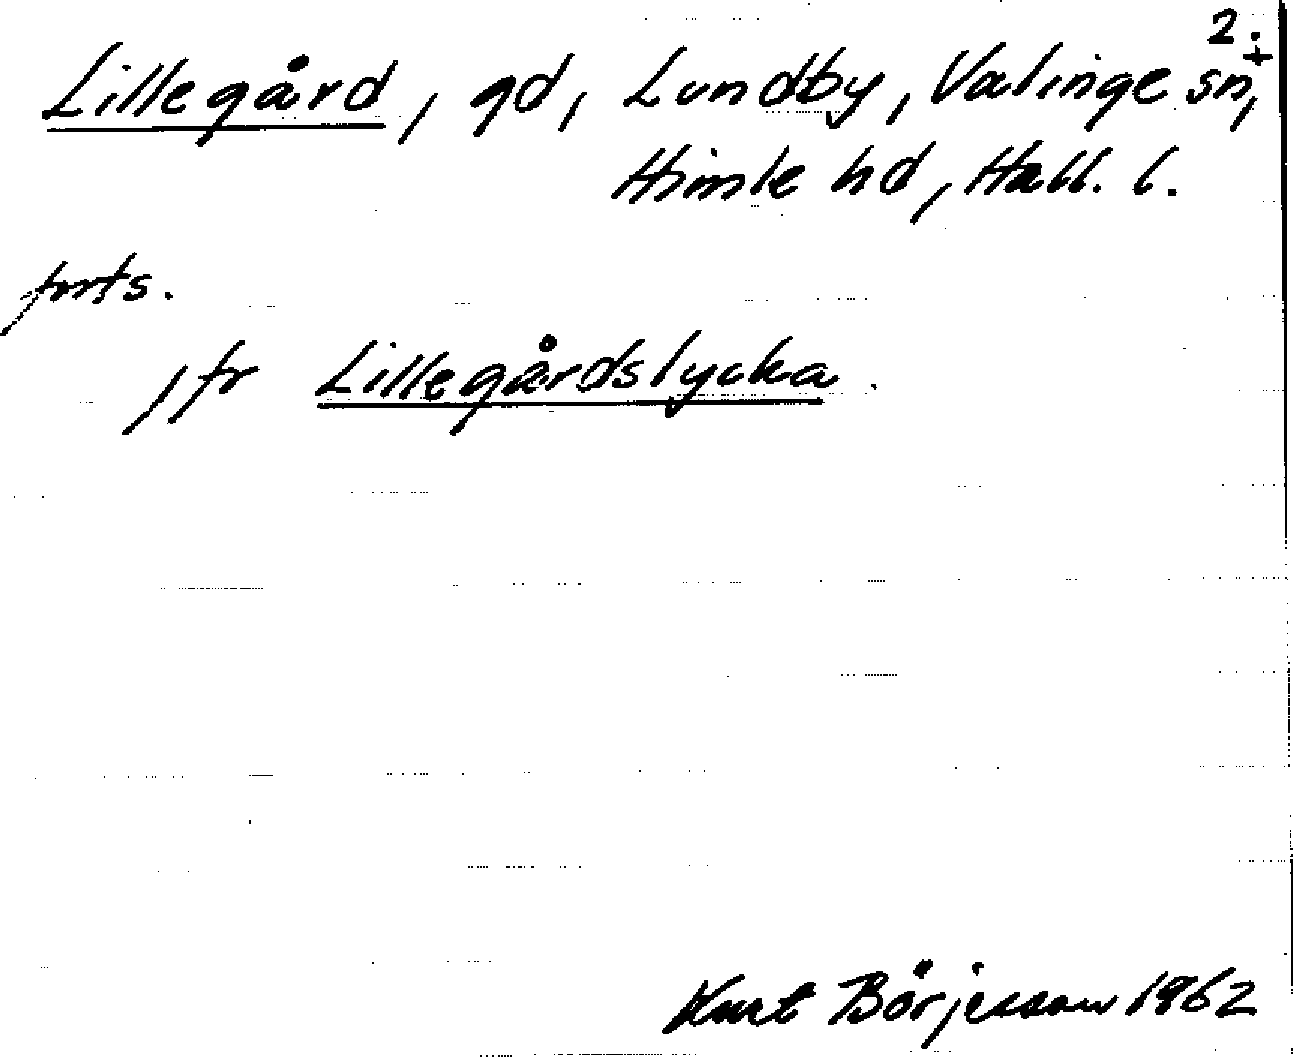 2.
Lillegård, gd, Lundby, Valinge sn, +
Himle hd, Hall. l.
forts.
jfr Lillegårdslycka.
Kurt Börjesson 1962